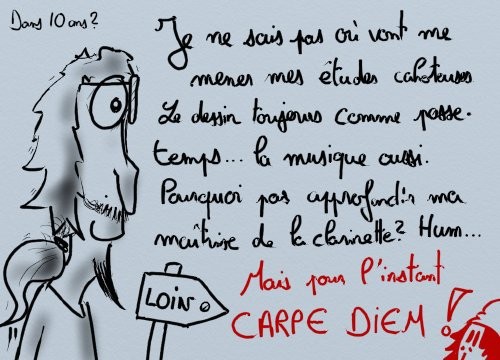 Dans 10 ans?
Je ne sais pas où vont me
mener mes études cahoteuses
Le dessin toujours comme passe-
temps... la musique aussi.
Pourquoi pas approfondir ma
maîtrise de la clarinette? Hum...
Mais pour l'instant
CARPE DIEM!
LOIN.